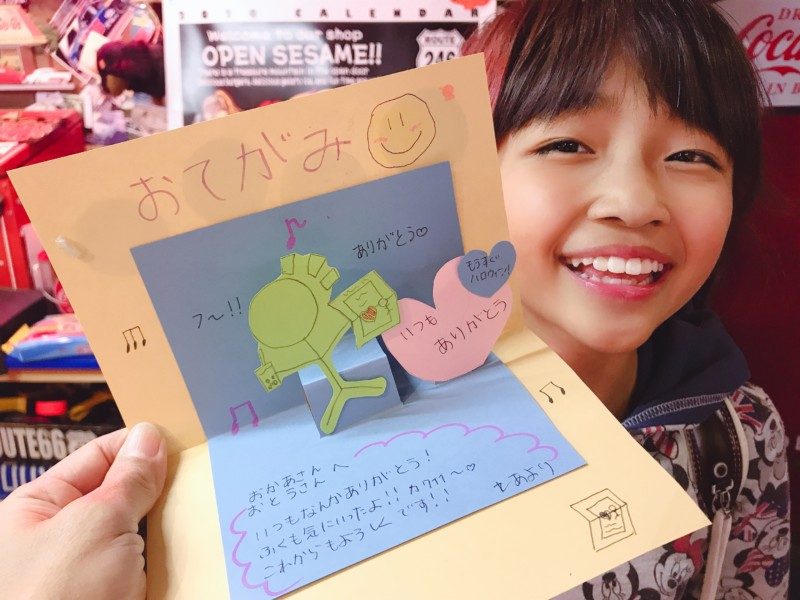 2010 CALENDAR
Welcome to our shop
OPEN SESAME!!
ROUTE
246
Coca
IN B
おてがみ
ありがとう♡
もうすぐ
ハロウィン!
フ〜!!
いつも
ありがとう
おかあさん
おとうさん へ
いつもなんかありがとう!
ふくも気にいったよ!! カワイイ〜♡
これからもよろしくです!!
もあより
OUTE66